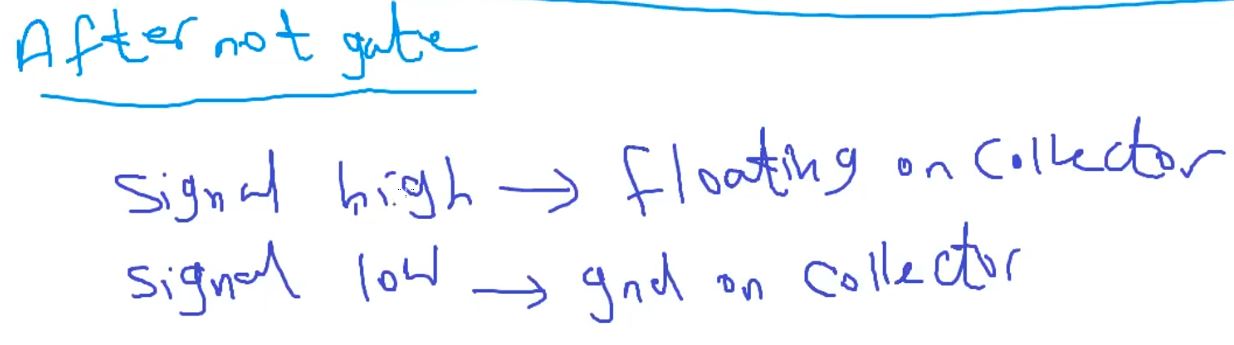 After not gate
Signal high → floating on Collector
Signal low → gnd on Collector